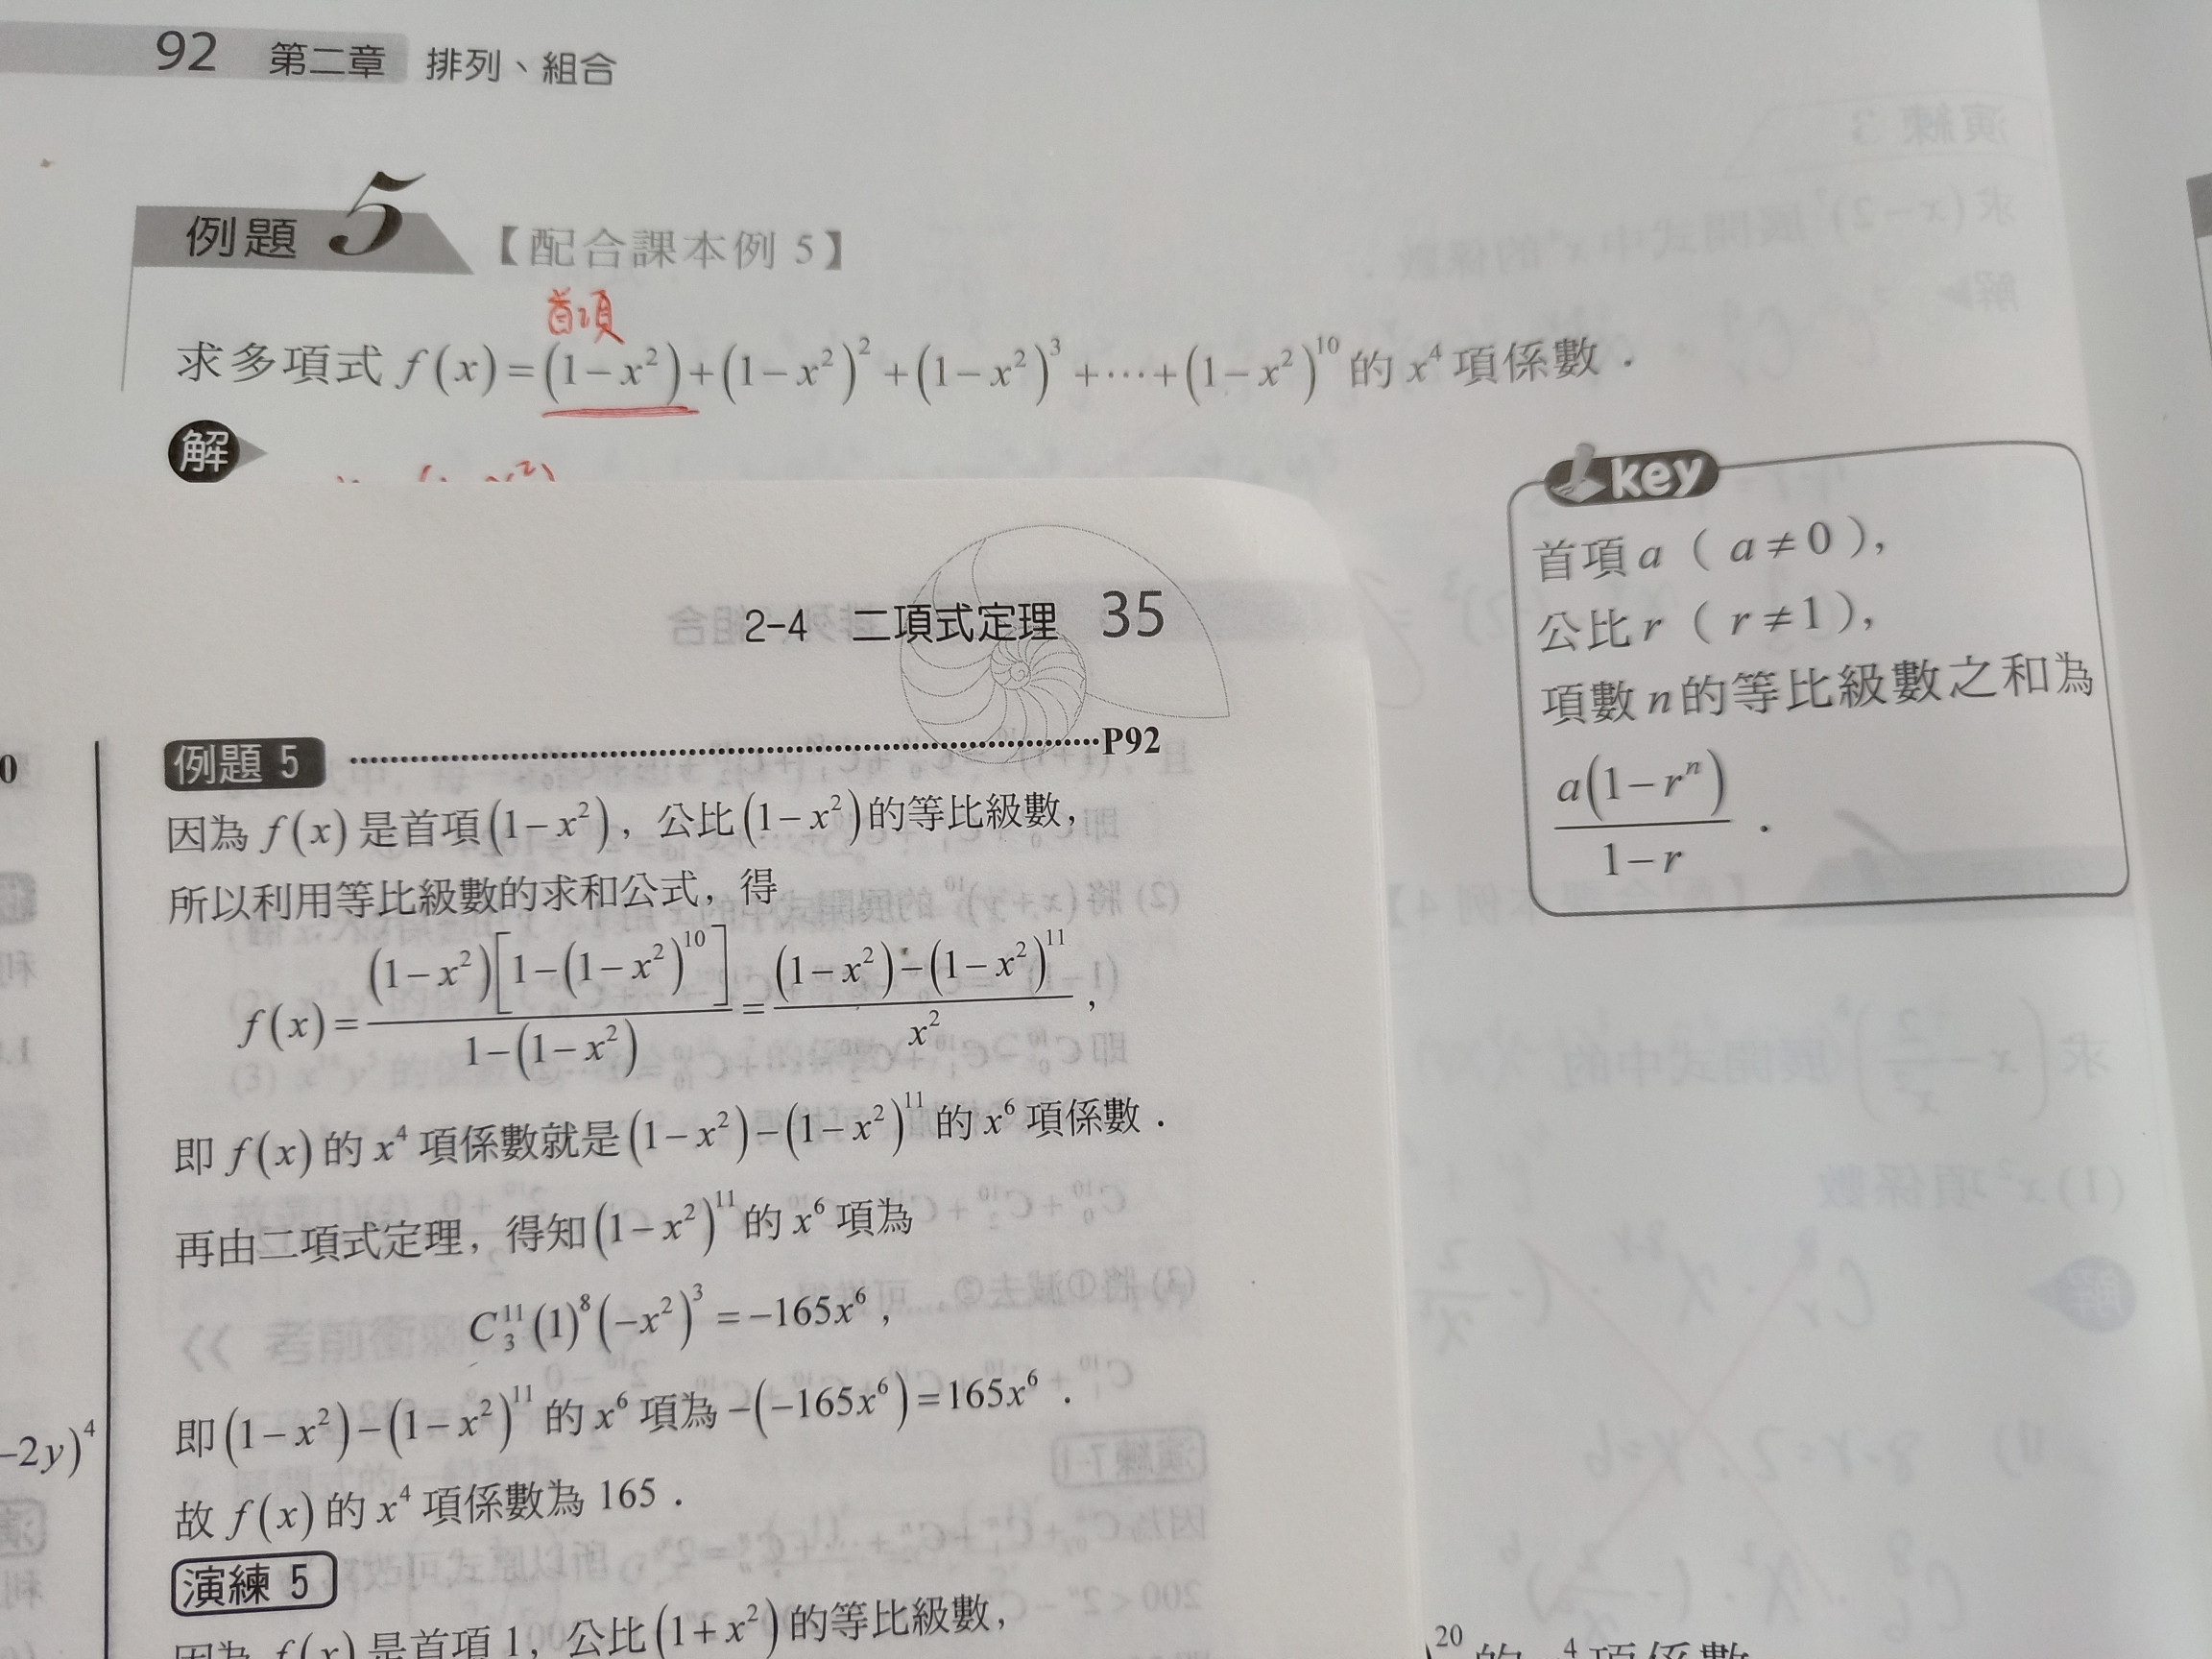 92 第二章 排列、組合
例題 5 【配合課本例 5】
首項
求多項式 f(x)=(1-x²)+(1-x²)²+(1-x²)³+⋯+(1-x²)¹⁰ 的 x⁴ 項係數．
解
(1-x²)
key
首項 a（a≠0），
公比 r（r≠1），
項數 n 的等比級數之和為
a(1-rⁿ)/(1-r)．
2-4 二項式定理 35
例題 5 ⋯⋯ P92
因為 f(x) 是首項 (1-x²)，公比 (1-x²) 的等比級數，
所以利用等比級數的求和公式，得
f(x)=(1-x²)[1-(1-x²)¹⁰]/(1-(1-x²))=((1-x²)-(1-x²)¹¹)/x²，
即 f(x) 的 x⁴ 項係數就是 (1-x²)-(1-x²)¹¹ 的 x⁶ 項係數．
再由二項式定理，得知 (1-x²)¹¹ 的 x⁶ 項為
C₃¹¹(1)⁸(-x²)³=-165x⁶，
即 (1-x²)-(1-x²)¹¹ 的 x⁶ 項為 -(-165x⁶)=165x⁶．
故 f(x) 的 x⁴ 項係數為 165．
演練 5
因為 f(x) 是首項 1，公比 (1+x²) 的等比級數，
0
-2y)⁴
)²⁰ 的 x⁴ 項係數